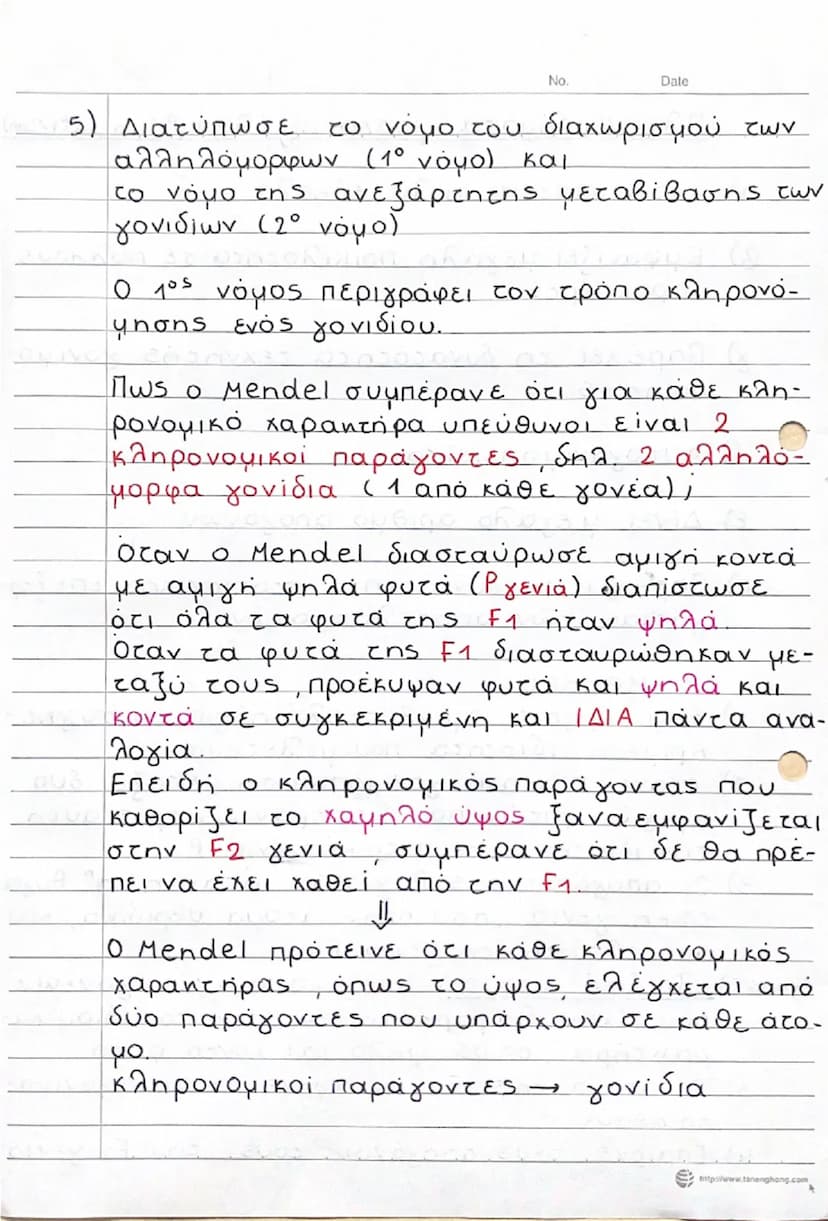 No. Date
5) Διατύπωσε το νόμο του διαχωρισμού των
αλληλόμορφων (1º νόμο) και
το νόμο της ανεξάρτητης μεταβίβασης των
γονιδίων (2º νόμο)
Ο 1ος νόμος περιγράφει τον τρόπο κληρονό-
μησης ενός γονιδίου.
Πως ο Mendel συμπέρανε ότι για κάθε κλη-
ρονομικό χαρακτήρα υπεύθυνοι είναι 2
κληρονομικοί παράγοντες, δηλ 2 αλληλό-
μορφα γονίδια (1 από κάθε γονέα);
Όταν ο Mendel διασταύρωσε αμιγή κοντά
με αμιγή ψηλά φυτά (P γενιά) διαπίστωσε
ότι όλα τα φυτά της F1 ήταν ψηλά.
Όταν τα φυτά της F1 διασταυρώθηκαν με-
ταξύ τους, προέκυψαν φυτά και ψηλά και
κοντά σε συγκεκριμένη και ΙΔΙΑ πάντα ανα-
λογία.
Επειδή ο κληρονομικός παράγοντας που
καθορίζει το χαμηλό ύψος ξαναεμφανίζεται
στην F2 γενιά, συμπέρανε ότι δε θα πρέ-
πει να έχει χαθεί από την F1.
⇓
Ο Mendel πρότεινε ότι κάθε κληρονομικός
χαρακτήρας, όπως το ύψος, ελέγχεται από
δύο παράγοντες που υπάρχουν σε κάθε άτο-
μο.
κληρονομικοί παράγοντες → γονίδια
http://www.tanenghong.com